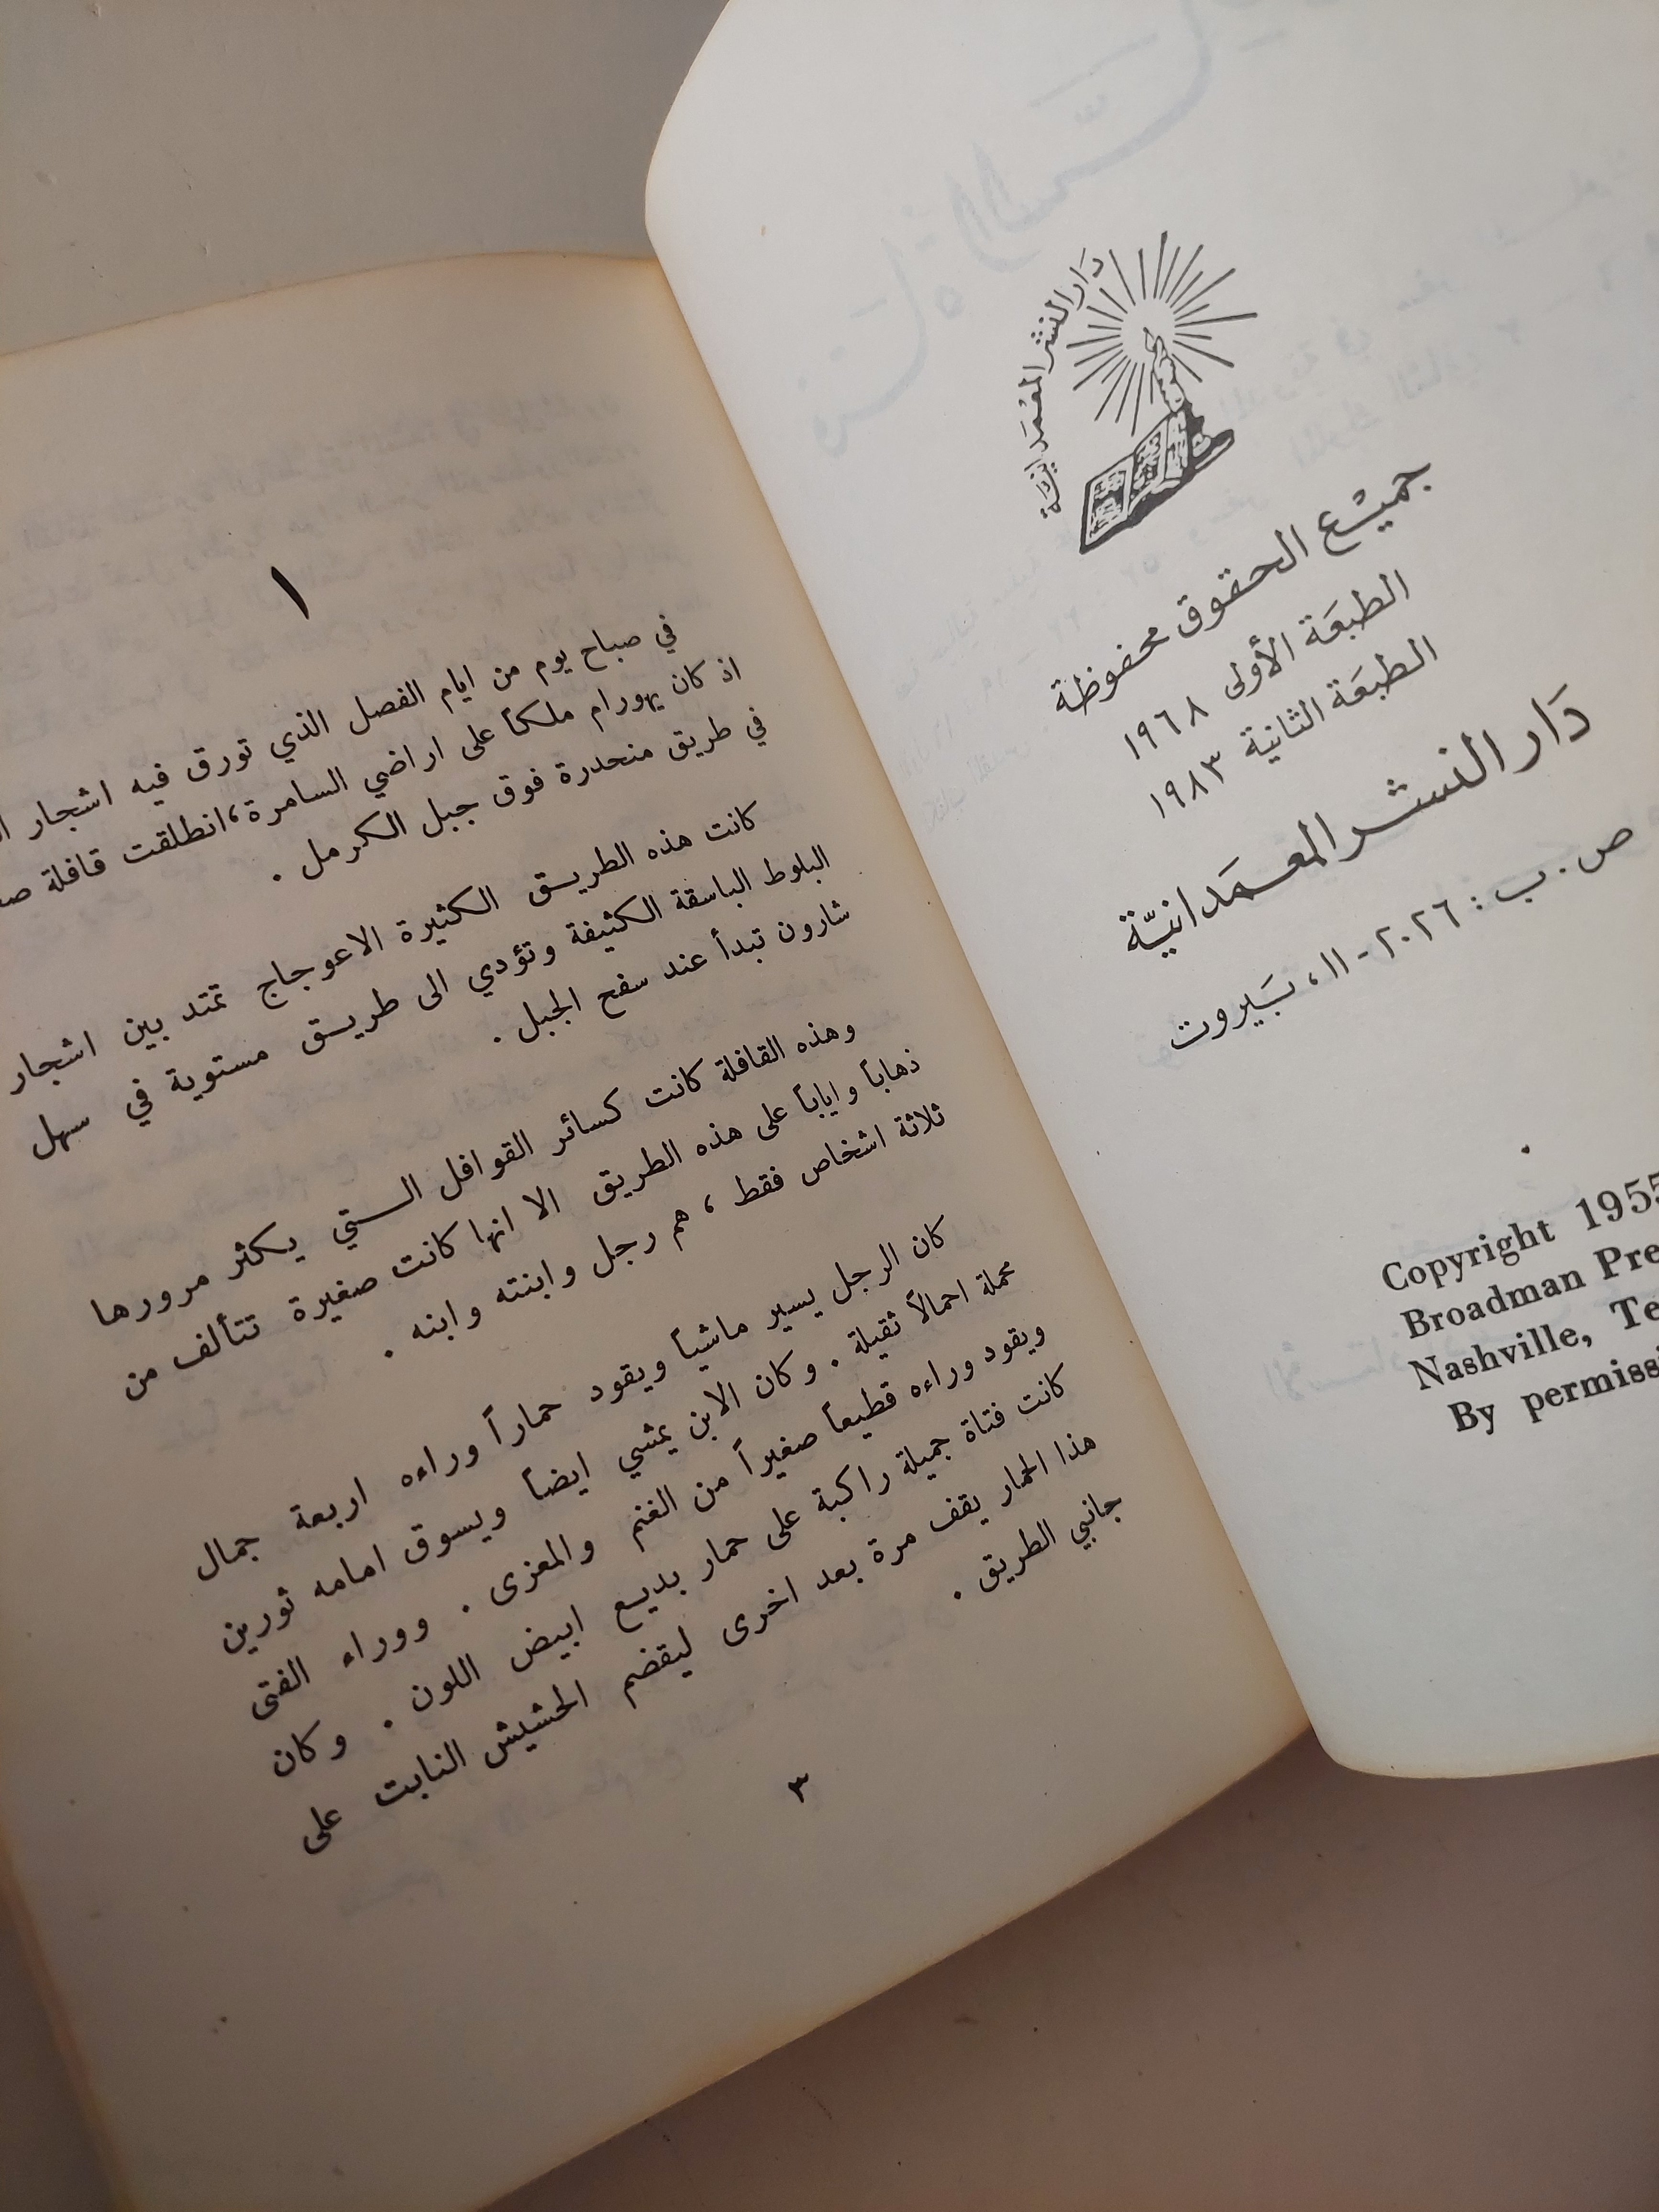 دَار النشر المعْمَدَانيّة
جميْع الحقوق محفوظة
الطبعَة الأولى ١٩٦٨
الطبعَة الثانية ١٩٨٣
دَار النشر المعمَدانيّة
ص. ب : ٢٠٢٦-١١، بَيروت
Copyright 1955
Broadman
Nashville,
By
١
في صباح يوم من ايام الفصل الذي تورق فيه اشجار
اذ كان يهورام ملكاً على اراضي السامرة، انطلقت قافلة
في طريق منحدرة فوق جبل الكرمل .
كانت هذه الطريق الكثيرة الاعوجاج تمتد بين اشجار
البلوط الباسقة الكثيفة وتؤدي الى طريق مستوية في سهل
شارون تبدأ عند سفح الجبل .
وهذه القافلة كانت كسائر القوافل التي يكثر مرورها
ذهاباً واياباً على هذه الطريق الا انها كانت صغيرة تتألف من
ثلاثة اشخاص فقط ، هم رجل وابنته وابنه .
كان الرجل يسير ماشياً ويقود حماراً وراءه اربعة جمال
محملة احمالاً ثقيلة . وكان الابن يمشي ايضاً ويسوق امامه ثورين
ويقود وراءه قطيعاً صغيراً من الغنم والمعزى . ووراء الفتى
كانت فتاة جميلة راكبة على حمار بديع ابيض اللون . وكان
هذا الحمار يقف مرة بعد اخرى ليقضم الحشيش النابت على
جانبي الطريق .
٣